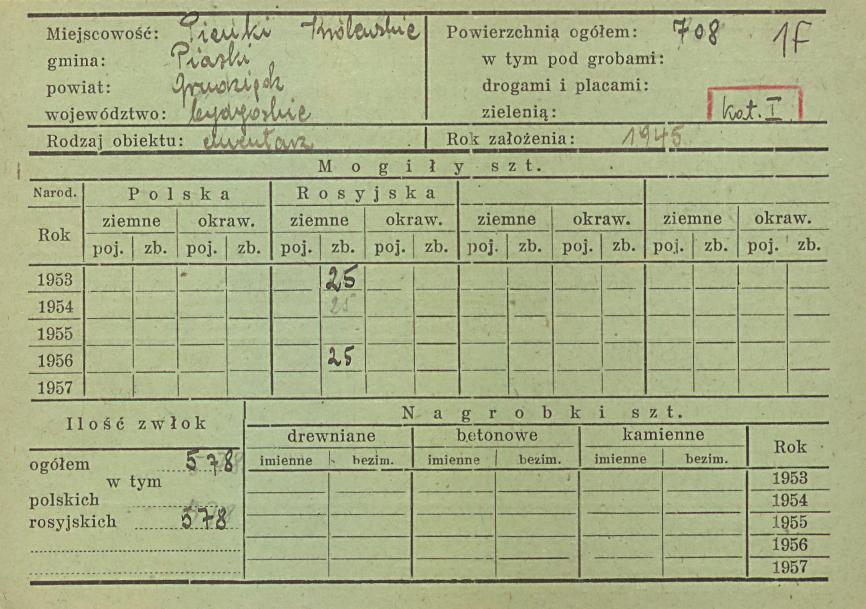 Miejscowość: Pieńki Królewskie
gmina: Piaski
powiat: Grudziądz
województwo: bydgoskie
Rodzaj obiektu: cmentarz
Powierzchnia ogółem: 708
1F
w tym pod grobami:
drogami i placami:
zielenią:
kat. I
Rok założenia: 1945
Mogiły szt.
Narod. Polska Rosyjska
Rok ziemne okraw. ziemne okraw. ziemne okraw. ziemne okraw.
poj. zb. poj. zb. poj. zb. poj. zb. poj. zb. poj. zb. poj. zb. poj. zb.
1953 25
1954 25
1955
1956 25
1957
Ilość zwłok
ogółem 578
w tym
polskich
rosyjskich 578
Nagrobki szt.
drewniane betonowe kamienne Rok
imienne bezim. imienne bezim. imienne bezim.
1953
1954
1955
1956
1957